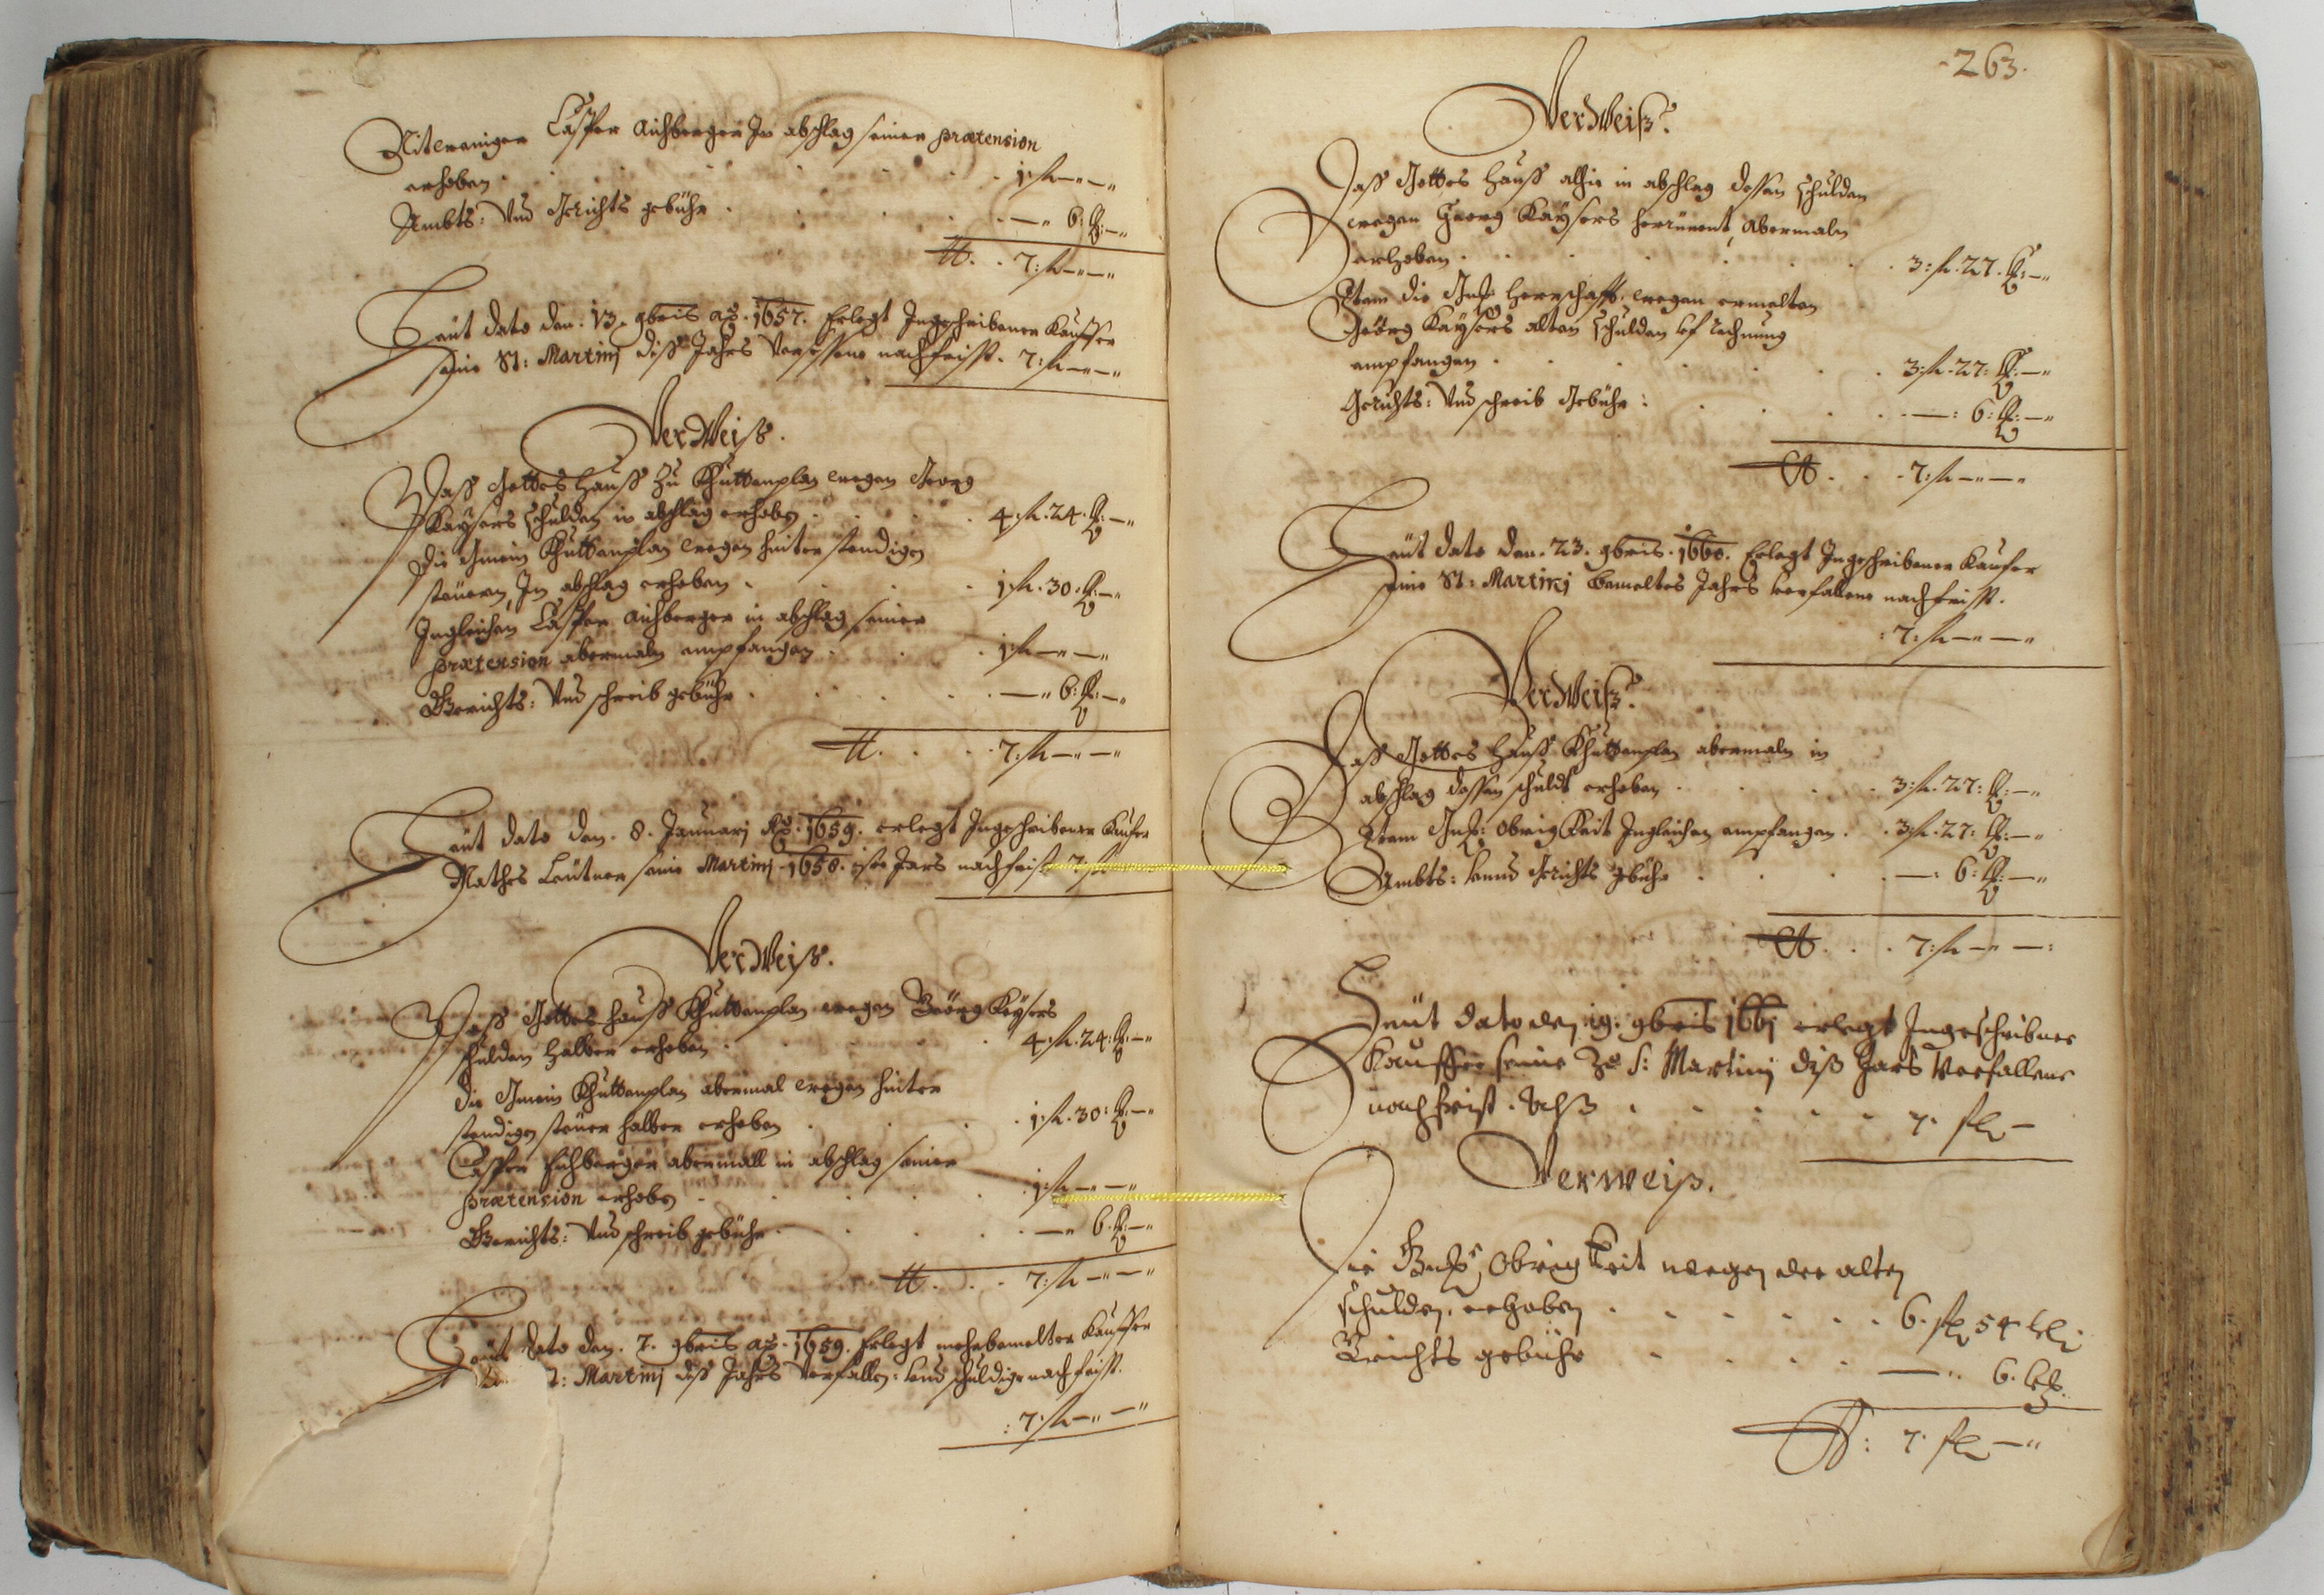 Caspar Aichberger In abschlag seiner prætension
erhoben . 1: fl — —
Ambts: Vnd Gerichts gebühr . — 6: kr: —
7: fl — —
Heüt dato den . 13. 9bris aõ . 1657. Erlegt Ingeschribener Kauffer
seine St: Martinj diß Jahrs nachfrist . 7: fl — —
Verweiß .
Daß Gottes Hauß Zu Khuttenplan wegen Georg
Kaysers schulden in abschlag erhoben . 4: fl . 24 . kr: —
Die Gmein Khuttenplan wegen hinterstendigen
steüern In abschlag erhoben . 1: fl . 30 . kr: —
Ingleichen Caspar Aichberger in abschlag seiner
prætension abermaln empfangen . 1: fl — —
Gerichts: Vnd schreib gebühr . — 6: kr: —
7: fl — —
Heüt dato den . 8. Januarj aõ . 1659. erlegt Ingeschribener Kaufer
Mathes Leütner seine Martinj . 1658. nachfrist 7 fl
Verweiß .
Daß Gottes Hauß Khuttenplan wegen Geörg Keysers
schulden halber erhoben . 4: fl . 24: kr: —
Die Gmein Khuttenplan abermal wegen hinter
stendigen steüer halber erhoben . 1: fl . 30: kr: —
Caspar Eichberger abermall in abschlag seiner
prætension erhoben . 1: fl — —
Gerichts: Vnd schreib gebühr . — 6. kr: —
7: fl — —
Heüt dato den . 7. 9bris aõ . 1659. Erlegt mehrbemelter Kauffer
: Martinj diß Jahrs Verfallen: vnd schuldige nachfrist .
: 7: fl — —
263.
Verweiß .
Daß Gottes Hauß alhie in abschlag dessen schulden
wegen Georg Kaysers herrürent, Abermaln
erhoben . 3: fl . 27 . kr: —
Item die Gn: Herrschafft wegen ermelten
Geörg Kaysers alten schulden vf rechnung
empfangen . 3: fl . 27: kr: —
Gerichts: Vnd schreib Gebühr : — : 6: kr: —
7: fl — —
Heüt dato den . 23. 9bris . 1660. Erlegt Ingeschribener Kaufer
seine St: Martinj bemeltes Jahrs verfallene nachfrist .
: 7: fl — —
Verweiß .
Daß Gottes Hauß Khuttenplan abermaln in
abschlag dessen schuldt erhoben . 3: fl . 27: kr: —
Item Gn: Obrigkeit Ingleichen empfangen . 3: fl . 27: kr: —
Ambts: vnnd Gerichts gebühr . — : 6: kr: —
7: fl — — :
Heüt dato den 19. 9bris 1661 erlegt Ingeschribner
Kauffer seine Zu S: Martinj diß Jars Verfallene
nachfrist . 7. fl —
Verweiß .
Die Obrigkeit wegen der alten
schulden . erhoben . 6. fl 54 kr
Grichts gebühr — 6. kr
7. fl —